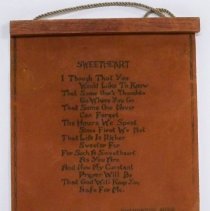 SWEETHEART
I Though That You
Would Like To Know
That Some One's Thoughts
Go Where You Go
That Some One Never
Can Forget
The Hours We Spent
Since First We Met
That Life Is Richer
Sweeter Far
For Such A Sweetheart
As You Are
And Now My Constant
Prayer Will Be
That God Will Keep You
Safe For Me.